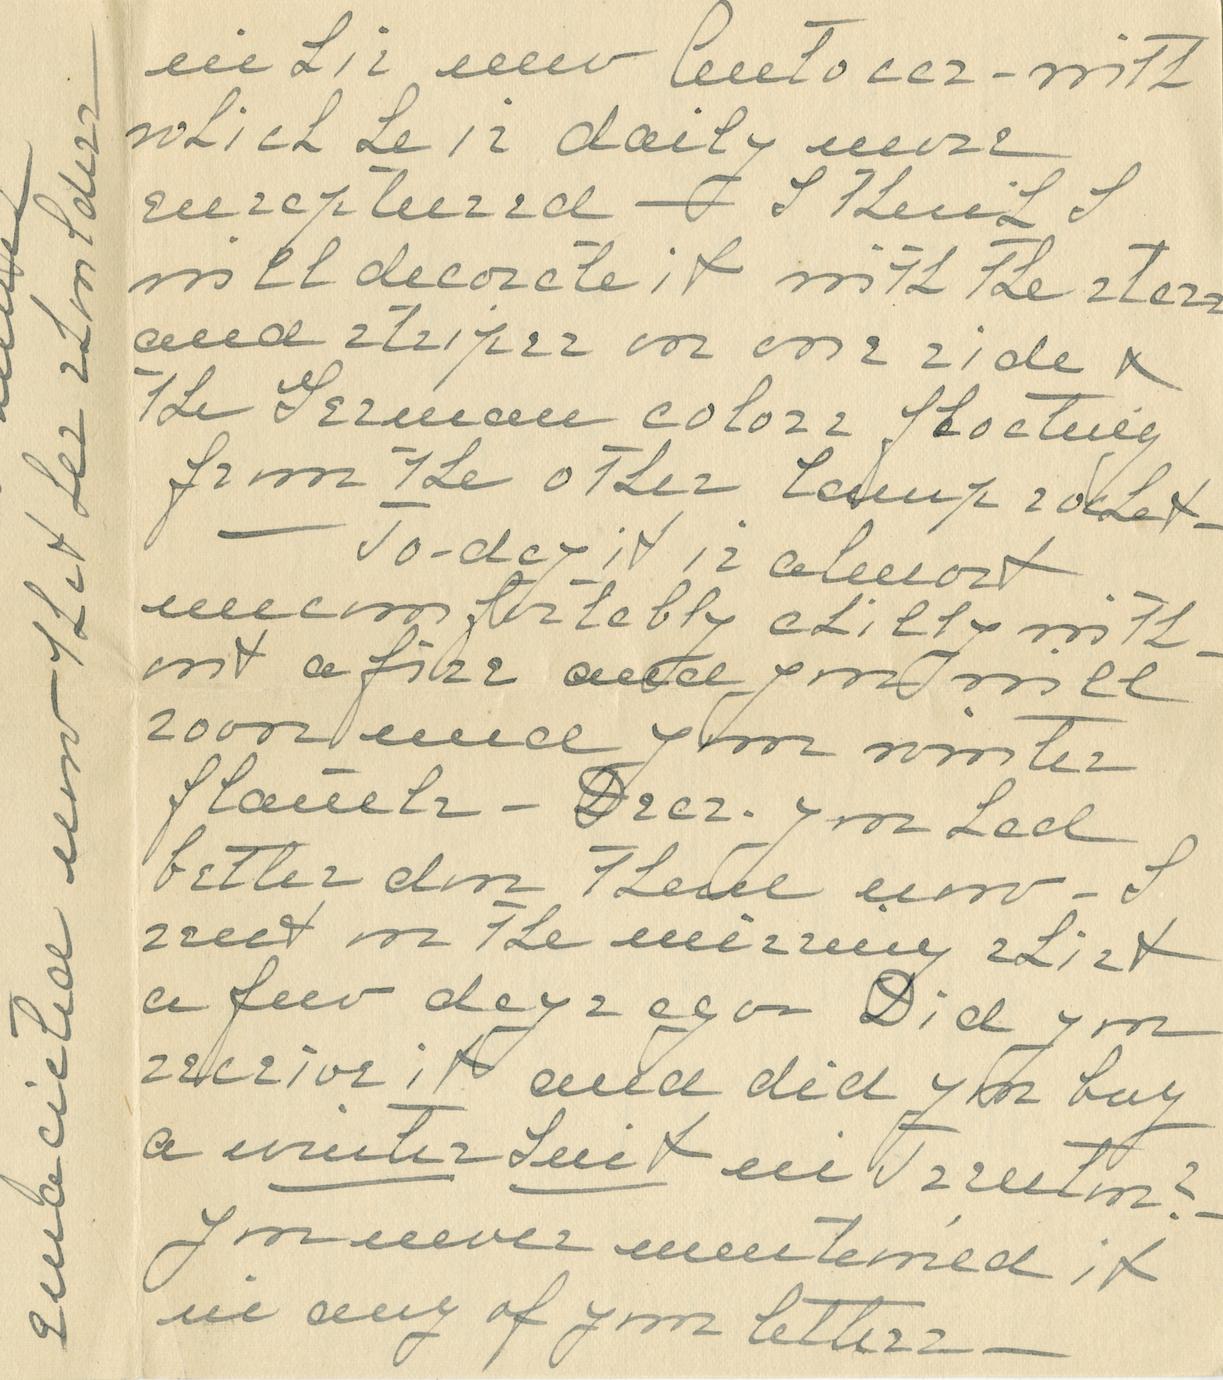 in his new Autocar - with
which he is daily more
enraptured — I think I
will decorate it with the stars
and stripes on one side &
the German colors floating
from the other lamp socket -
— To-day it is almost
uncomfortably chilly with-
out a fire and you will
soon need your winter
flannels - Dres. you had
better don them now - I
sent on the missing shirt
a few days ago Did you
receive it and did you buy
a winter suit in Trenton? -
You never mentioned it
in any of your letters —
emaciated now that her shoulders